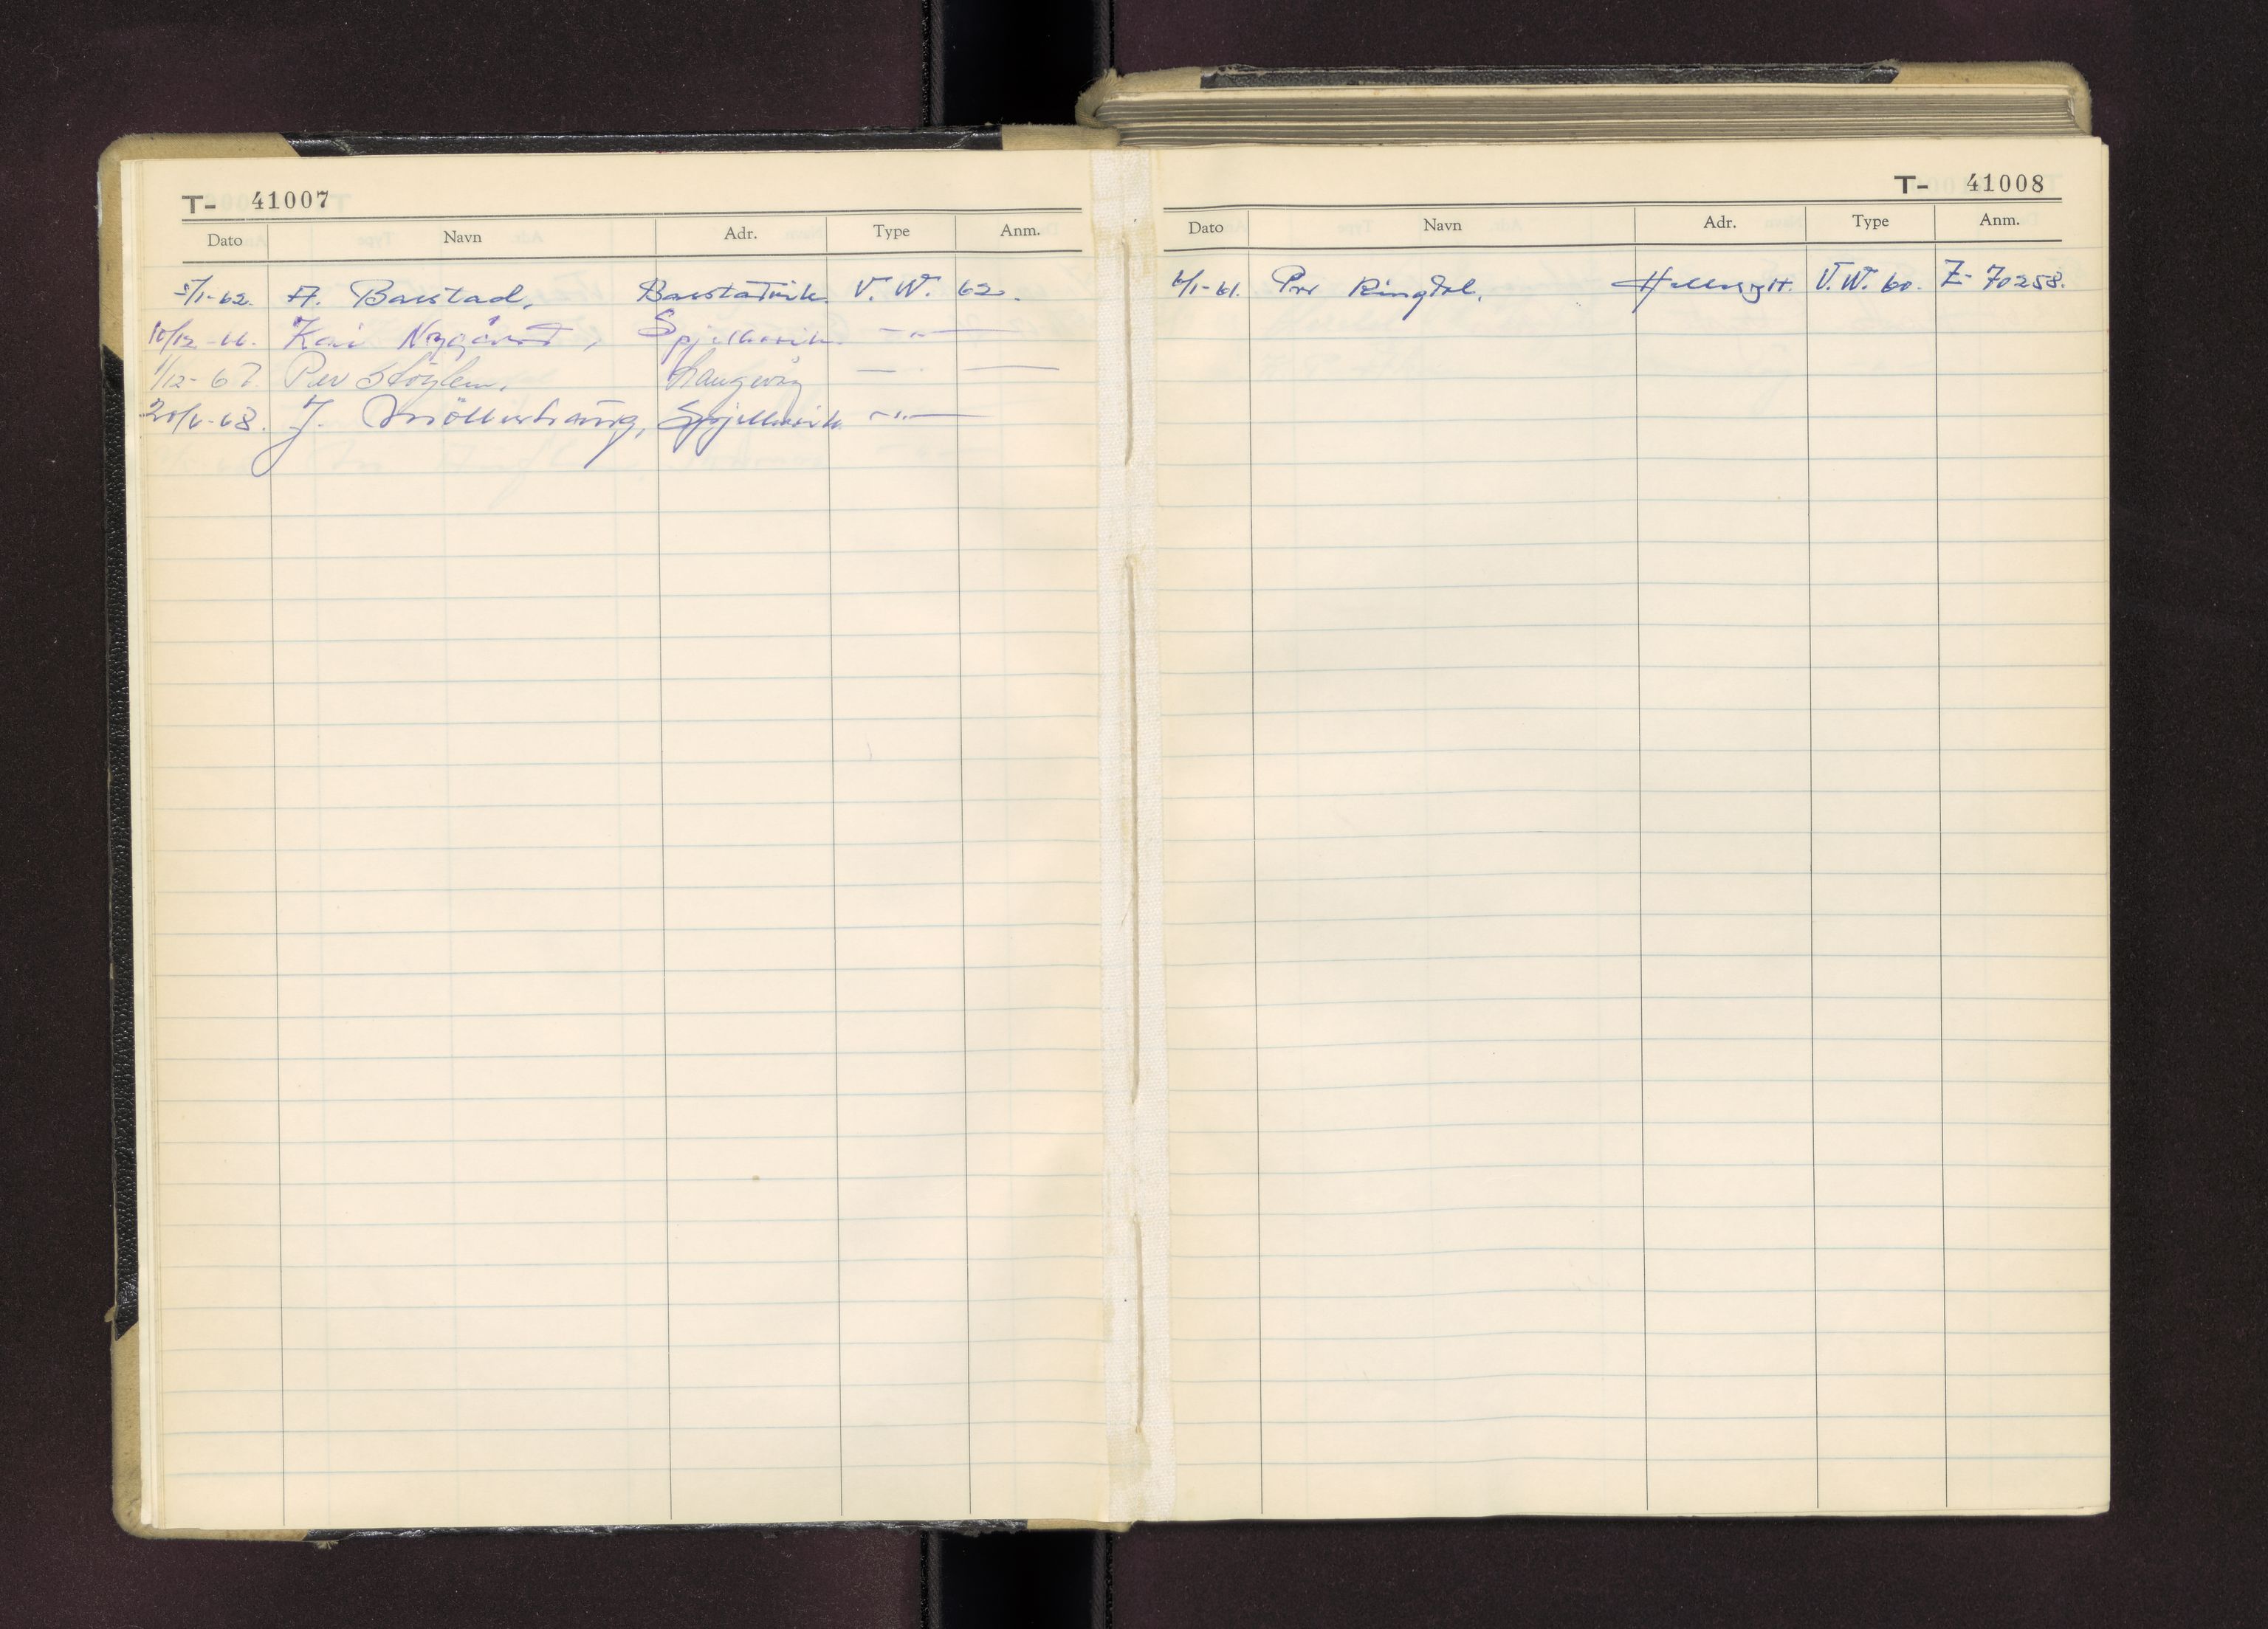 T- 41007
Dato Navn Adr. Type Anm.
5/1-62. A. Barstad, Barstadvik V. W. 62.
10/12-66. Kai Nygård, Spjelkavik -"-
1/12-67. Per Støylen, Langevåg -"-
J. Spjelkavik -"-
T- 41008
Dato Navn Adr. Type Anm.
6/1-61. Per Ringdal, Hellesylt. V. W. 60. Z- 70258.